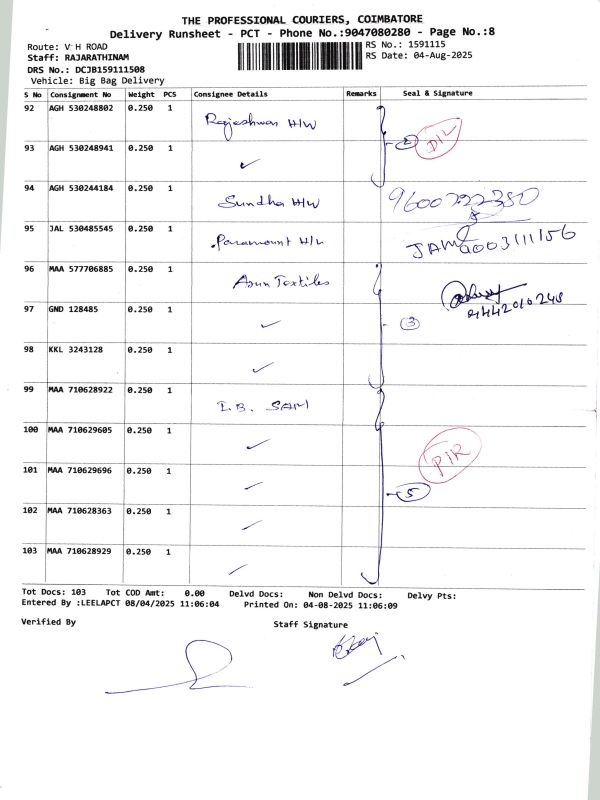 THE PROFESSIONAL COURIERS, COIMBATORE
Delivery Runsheet - PCT - Phone No.:9047080280 - Page No.:8
Route: V H ROAD
RS No.: 1591115
Staff: RAJARATHINAM
RS Date: 04-Aug-2025
DRS No.: DCJB159111508
Vehicle: Big Bag Delivery
S No Consignment No Weight PCS Consignee Details Remarks Seal & Signature
92 AGH 530248802 0.250 1 Rajeshwari H/W
93 AGH 530248941 0.250 1 ✓ 2 DIL
94 AGH 530244184 0.250 1 Sundha H/W 9600722380
95 JAL 530485545 0.250 1 Paramount H/W
96 MAA 577706885 0.250 1 Arun Textiles
97 GND 128485 0.250 1 ✓ 3 9442010248
98 KKL 3243128 0.250 1 ✓
99 MAA 710628922 0.250 1 I.B. SAM
100 MAA 710629605 0.250 1 ✓ PIR
101 MAA 710629696 0.250 1 ✓ 5
102 MAA 710628363 0.250 1 ✓
103 MAA 710628929 0.250 1 ✓
Tot Docs: 103 Tot COD Amt: 0.00 Delvd Docs: Non Delvd Docs: Delvy Pts:
Entered By :LEELAPCT 08/04/2025 11:06:04 Printed On: 04-08-2025 11:06:09
Verified By Staff Signature